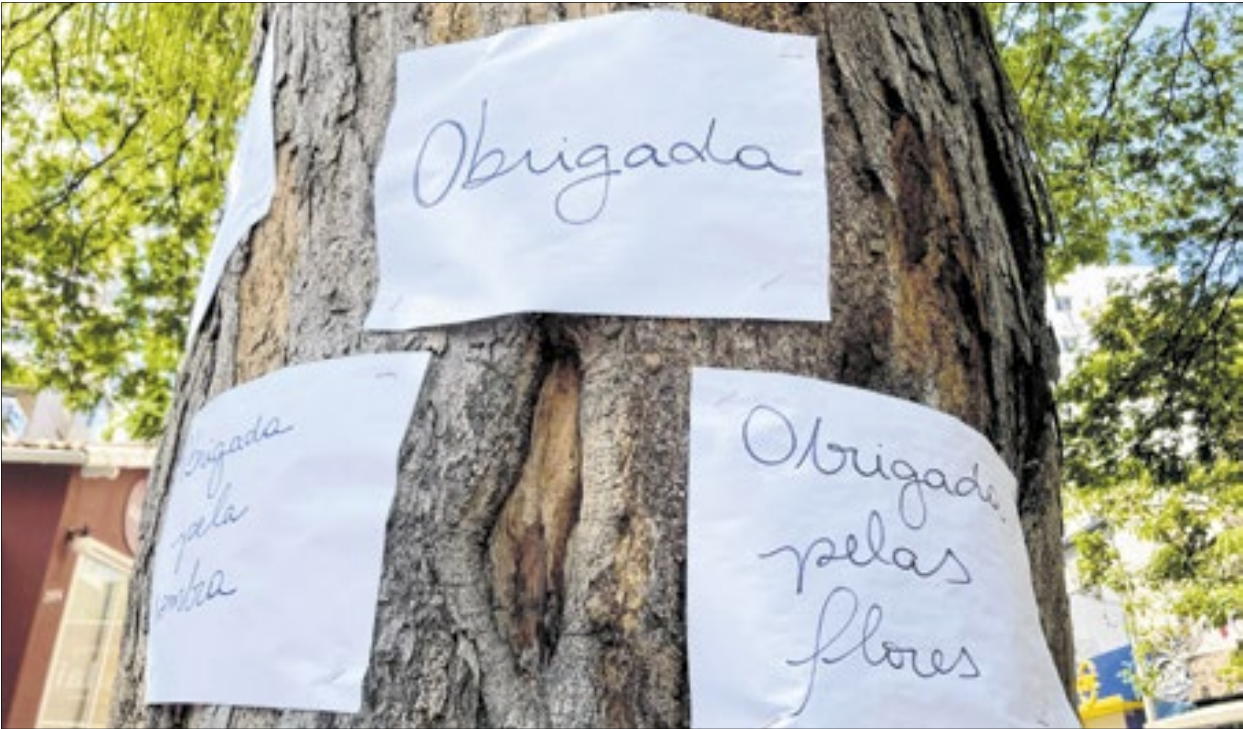 Obrigada
brigada
pela
ombra
Obrigada
pelas
flores